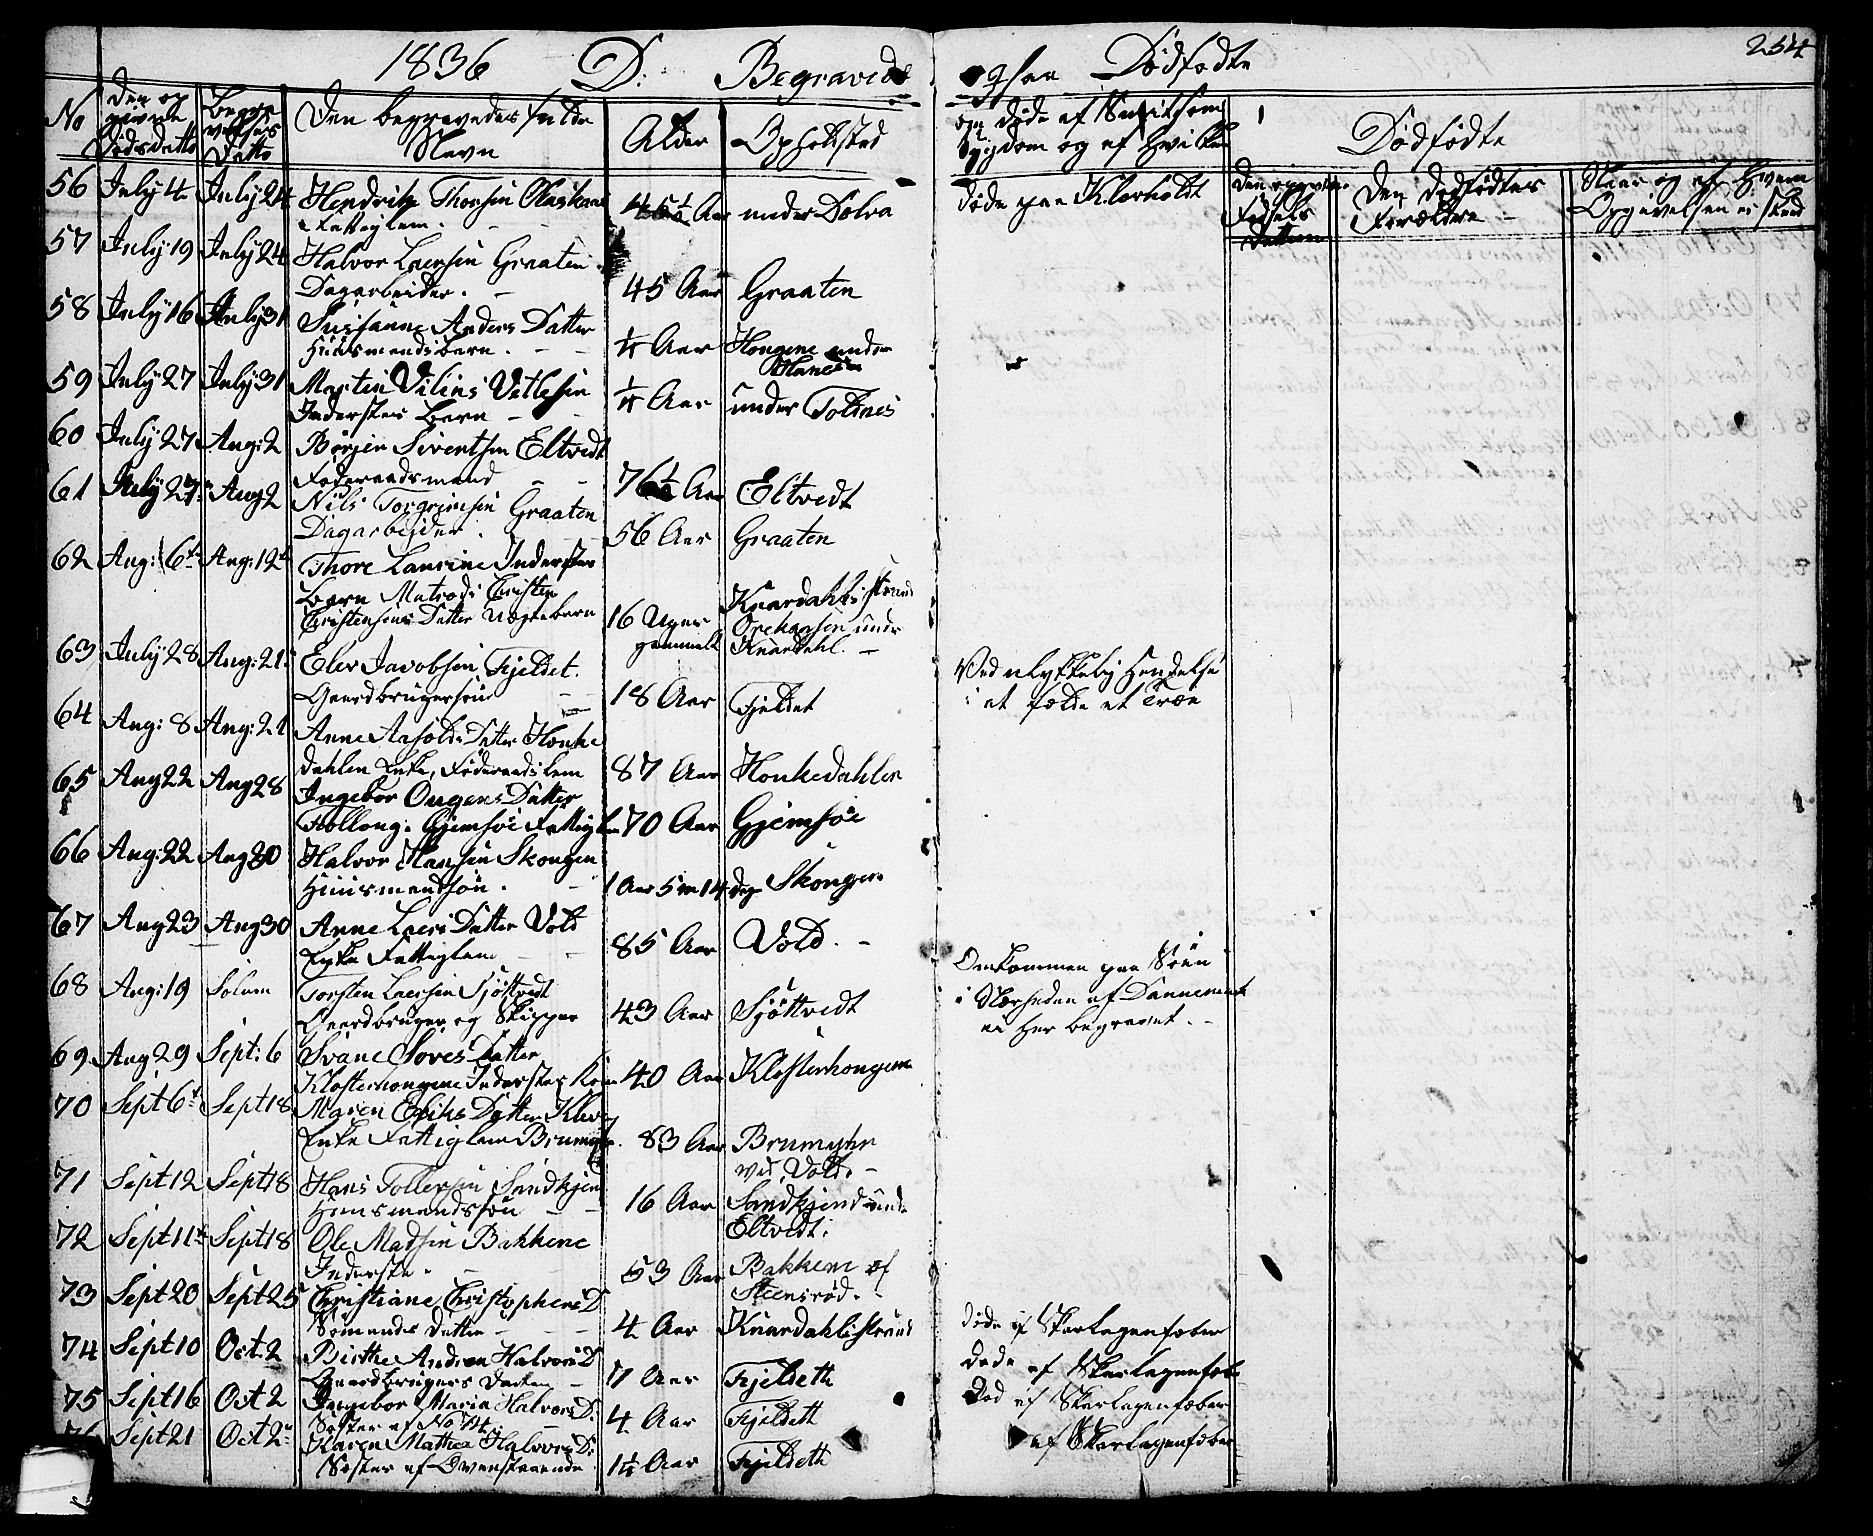 1836 D: Begravede ogsaa Dødfødte 254
No
Dødsdatto
Datto
Den begravedes fulde
Navn
Alder
Opholdsted
Sygdom og af hvilken
Dødfødte
Den Dødfødtes
Forældre
56 July 4 July 24 Hendrik
Fattiglem. 45½ Aar under Dølva døde paa
57 July 19 July 24 Halvor Larsen Graaten
Dagarbeider. 45 Aar Graaten
58 July 16 July 31 Susanne Anders Datter
Huusmandsbarn. ¼ Aar under
59 July 27 July 31 Martin Vilius Vetlesen
Inderstes Barn ¼ Aar under Toldnes
60 July 27 Aug: 2 Børjer Siventsen Eltvedt
Føderaadsmand 76½ Aar Eltvedt
61 July 27 Aug 2 Nils Torgrimsen Graaten
Dagarbejder. 56 Aar Graaten
62 Aug: 6te Aug: 12te Thore Laurine Inderstes
Barn Matros Christen
Christensens Datter Uægtebarn 16 Uger
gammelt Knardahlsstrand
under
Knardahl.
63 July 28 Aug: 21 Elev Jacobsen Fjeldet.
Gaardbrugersøn 18 Aar Fjeldet Ved ulykkelig Hændelse
i at fælde et Træe
64 Aug: 8 Aug: 21 Anne Aasolds Datter Houke
dahlen Enke, Føderaadslem 87 Aar Houkedahlen
65 Aug 22 Aug 28 Ingebor Ougens Datter
Gjemsøe Fattiglem 70 Aar Gjemsøe
66 Aug: 22 Aug 30 Halvor Hansen Skougen
Huusmandsøn. 1 Aar 5 m 14 dag Skougen
67 Aug 23 Aug 30 Anne Laers Datter Vold
Enke Fattiglem 85 Aar Vold.
68 Aug: 19 Solum Torsten Laersen Sjøttvedt
Gaardbruger og Skipper 43 Aar Sjøttvedt Omkommen paa Søen
i Nærheden af Dannemark
ei her begravet.
69 Aug 29 Sept: 6 Svane Søves Datter
Klosterhougene Inderstes Kone 40 Aar Klosterhougene
70 Sept 6te Sept 18 Maren Eriks Datter
Enke Fattiglem 83 Aar
ved Vold.
71 Sept 12 Sept 18 Hans Tollersen Sandkjend
Huusmandssøn 16 Aar Sandkjend under
Eltvedt.
72 Sept 11te Sept 18 Ole Madsen Bakkene
Inderste. 53 Aar Bakkene af
Steensrød.
73 Sept 20 Sept 25 Christiane Christophers D
Sømands Datter 4 Aar Knardahlsstrand døde af Skarlagensfeber
74 Sept 10 Oct. 2 Birthe Andrea Halvors D
Gaardbrugers Datter 7 Aar Fjeldeth døde af Skarlagensfeber
75 Sept 16 Oct 2 Ingebor Maria Halvors D:
Søster af No 74. 4 Aar Fjeldeth Død af Skarlagensfeber
76 Sept 21 Oct 2 Karen Mathea Halvors D:
Søster af Ovenstaaende 1¼ Aar Fjeldeth af Skarlagensfeber